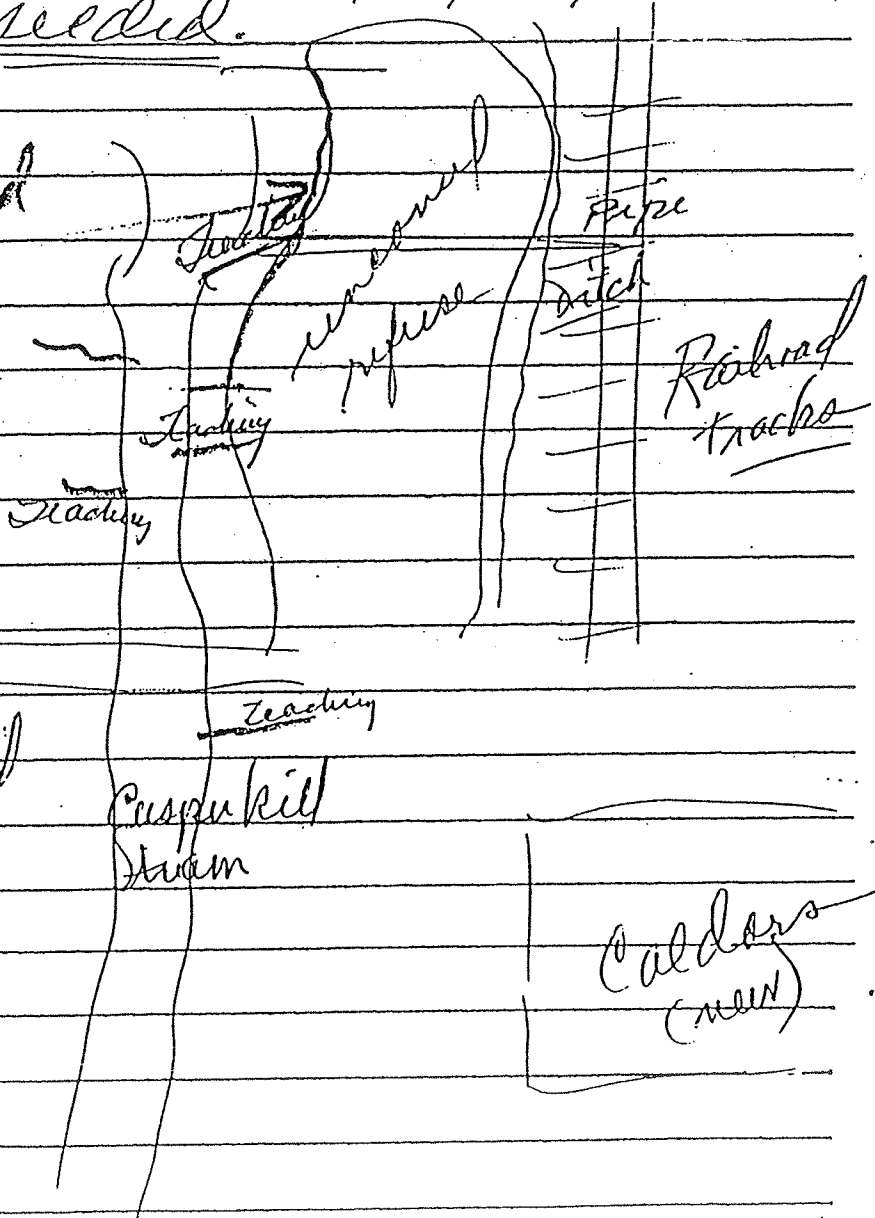 seeded.
Leaching
uncovered
refuse
pipe
ditch
Railroad
tracks
Leaching
Leaching
Leaching
Casper kill
Stream
Caldors
(new)